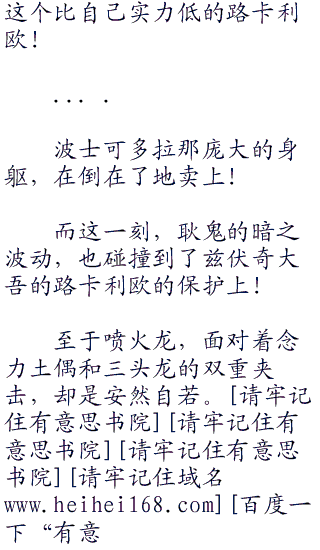 这个比自己实力低的路卡利
欧！
... .
波士可多拉那庞大的身
躯，在倒在了地卖上！
而这一刻，耿鬼的暗之
波动，也碰撞到了兹伏奇大
吾的路卡利欧的保护上！
至于喷火龙，面对着念
力土偶和三头龙的双重夹
击，却是安然自若。[请牢记
住有意思书院][请牢记住有
意思书院][请牢记住有意思
书院][请牢记住域名
www.heihei168.com][百度一
下“有意